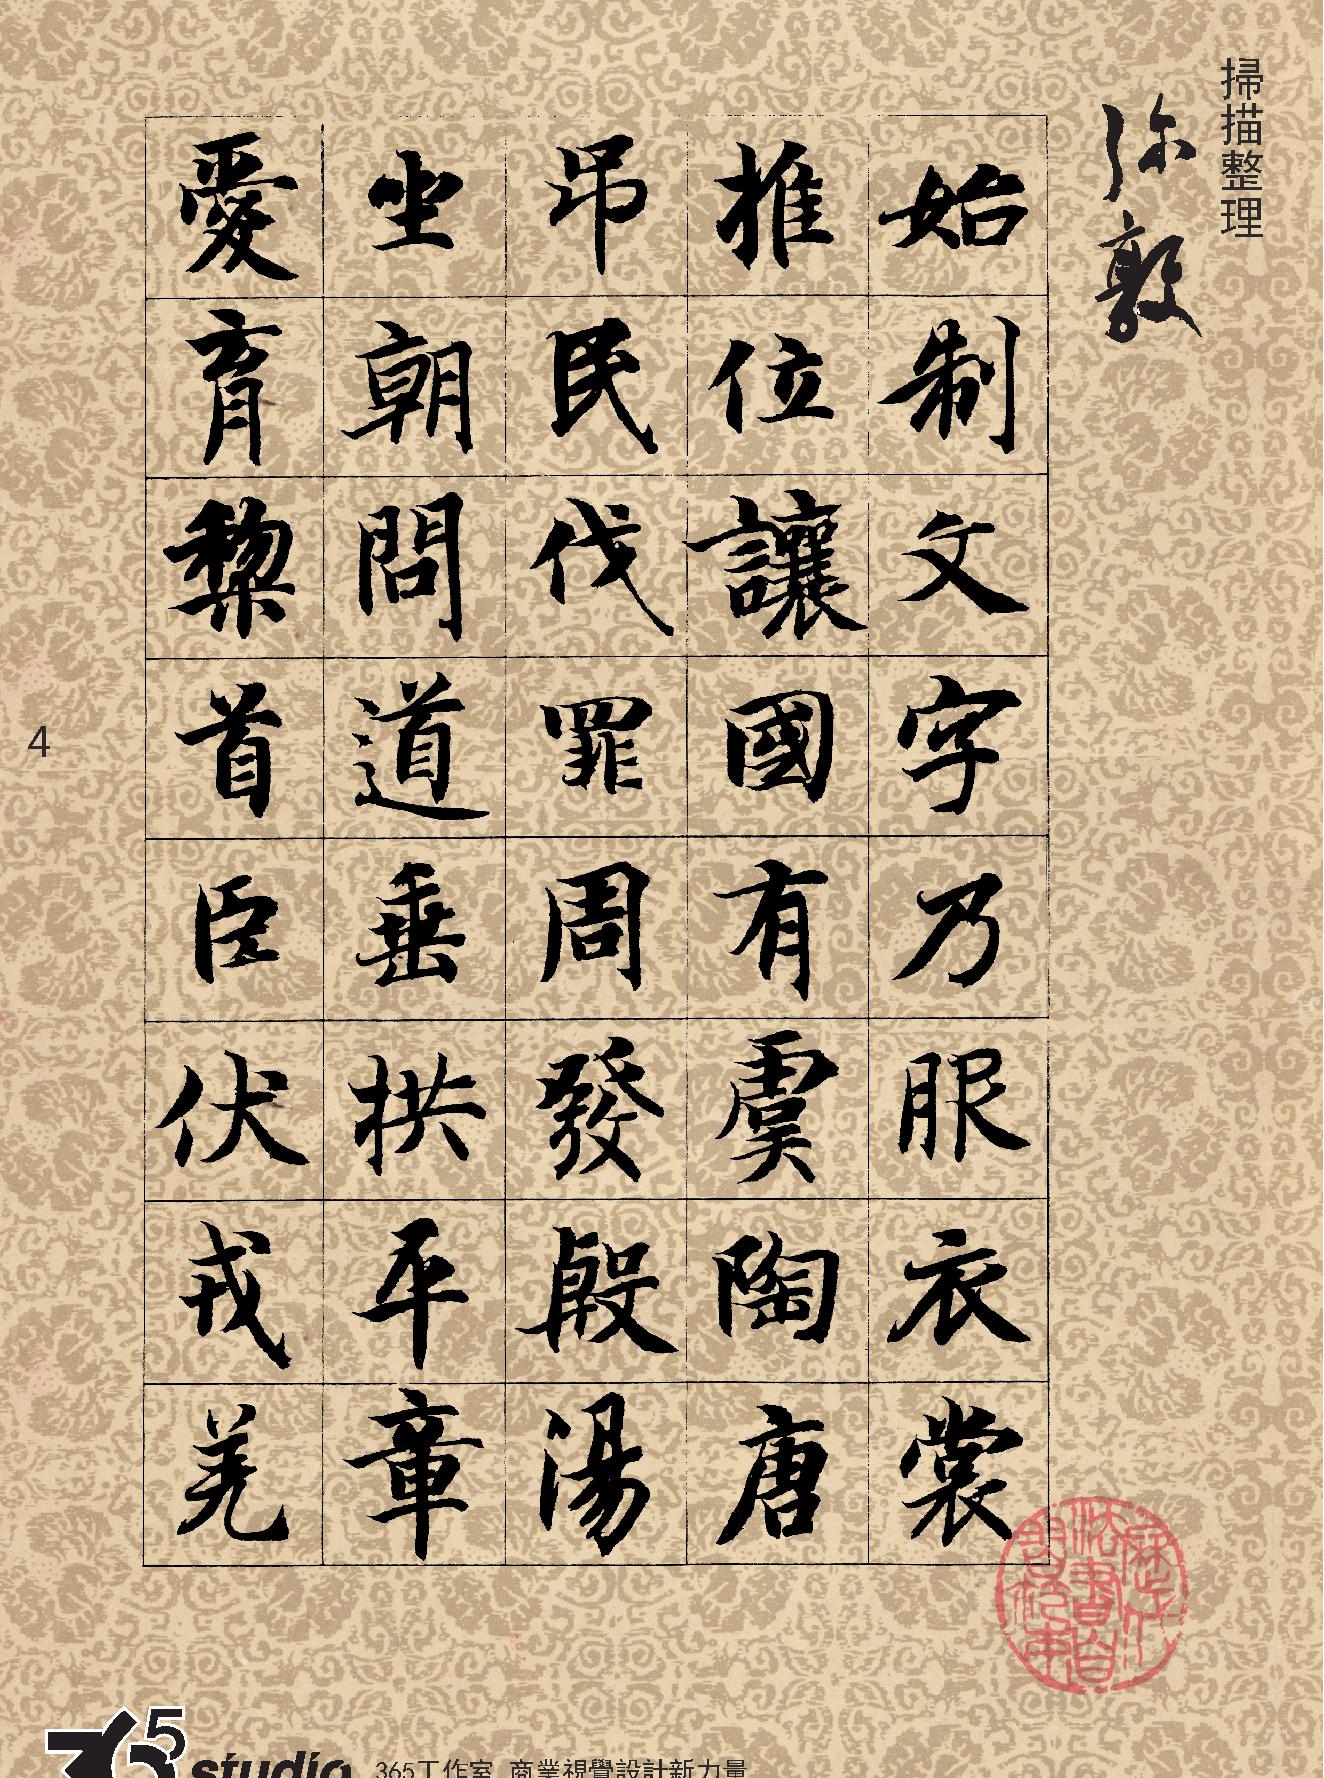 掃描整理
弥敦
始制文字乃服衣裳
推位讓國有虞陶唐
吊民伐罪周發殷湯
坐朝問道垂拱平章
愛育黎首臣伏戎羌
4
365 studio 365工作室 商業視覺設計新力量